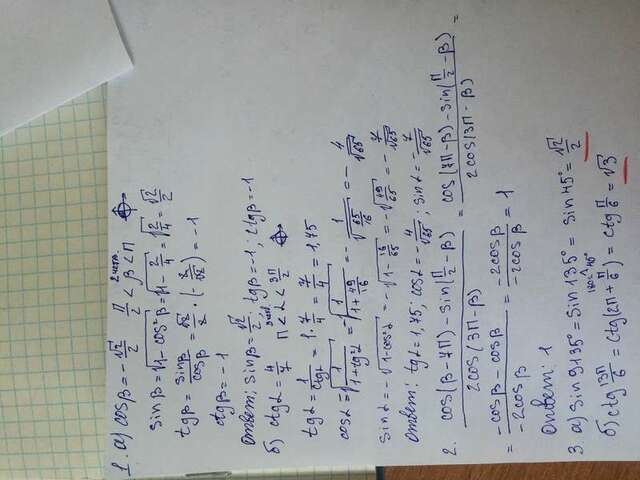 1. а) cosβ = -√2/2   π/2 < β < π   2 четв.
sinβ = √(1-cos²β) = √(1-2/4) = √(2/4) = √2/2
tgβ = sinβ/cosβ = √2/2 · (-2/√2) = -1
ctgβ = -1
Ответ: sinβ = √2/2; tgβ = -1; ctgβ = -1
б) ctgα = 4/7   π < α < 3π/2   3 четв.
tgα = 1/ctgα = 1·7/4 = 7/4 = 1,75
cosα = -√(1/(1+tg²α)) = -√(1/(1+49/16)) = -1/√(65/16) = -4/√65
sinα = -√(1-cos²α) = -√(1-16/65) = -√(49/65) = -7/√65
Ответ: tgα = 1,75; cosα = -4/√65; sinα = -7/√65
2. (cos(β-7π) - sin(π/2-β))/(2cos(3π-β)) = (cos(7π-β) - sin(π/2-β))/(2cos(3π-β)) =
= (-cosβ - cosβ)/(-2cosβ) = (-2cosβ)/(-2cosβ) = 1
Ответ: 1
3. а) sin 9135° = sin 135° = sin 45° = √2/2
180°-45°
б) ctg 13π/6 = ctg(2π + π/6) = ctg π/6 = √3